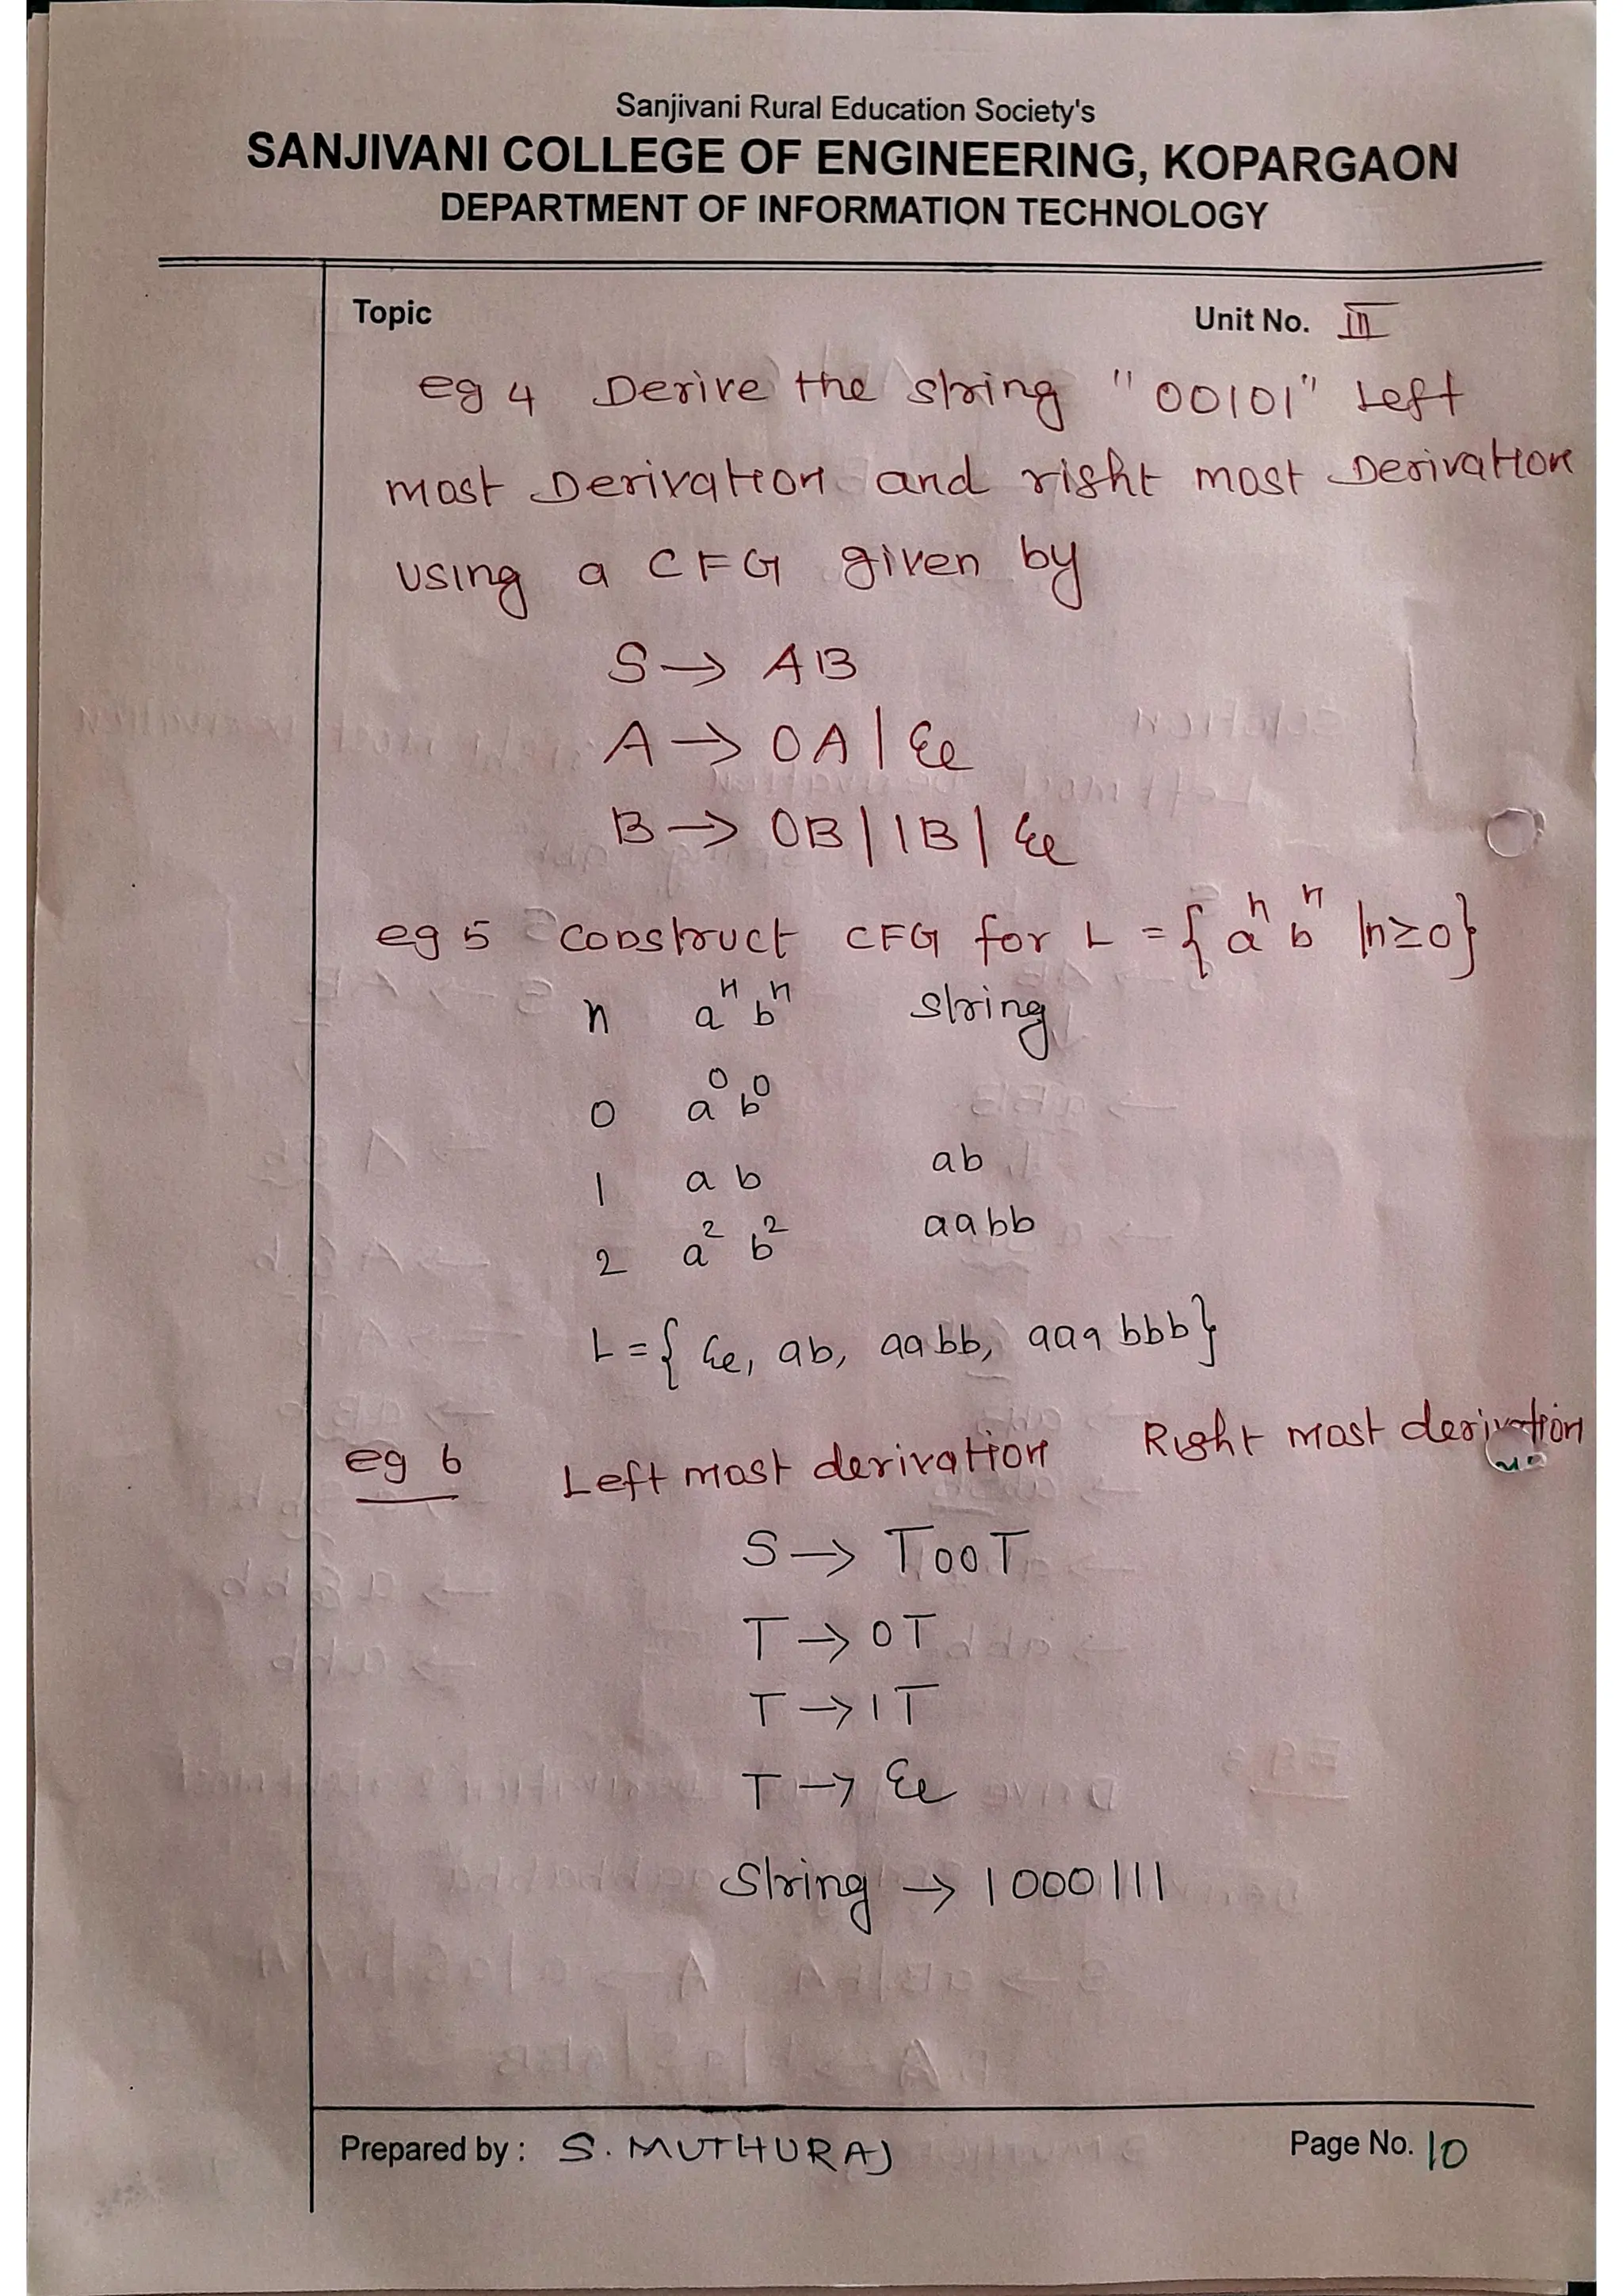 Sanjivani Rural Education Society's
SANJIVANI COLLEGE OF ENGINEERING, KOPARGAON
DEPARTMENT OF INFORMATION TECHNOLOGY
Topic Unit No. III
eg 4 Derive the string "00101" Left
most Derivation and right most Derivation
using a CFG given by
S → AB
A → 0A | ε
B → 0B | 1B | ε
eg 5 construct CFG for L = { aⁿ bⁿ | n ≥ 0 }
n aⁿ bⁿ string
0 a⁰ b⁰
1 a b ab
2 a² b² aabb
L = { ε, ab, aabb, aaabbb }
eg 6 Left most derivation Right most derivation
S → T00T
T → 0T
T → 1T
T → ε
String → 1000111
Prepared by : S. MUTHURAJ Page No. 10